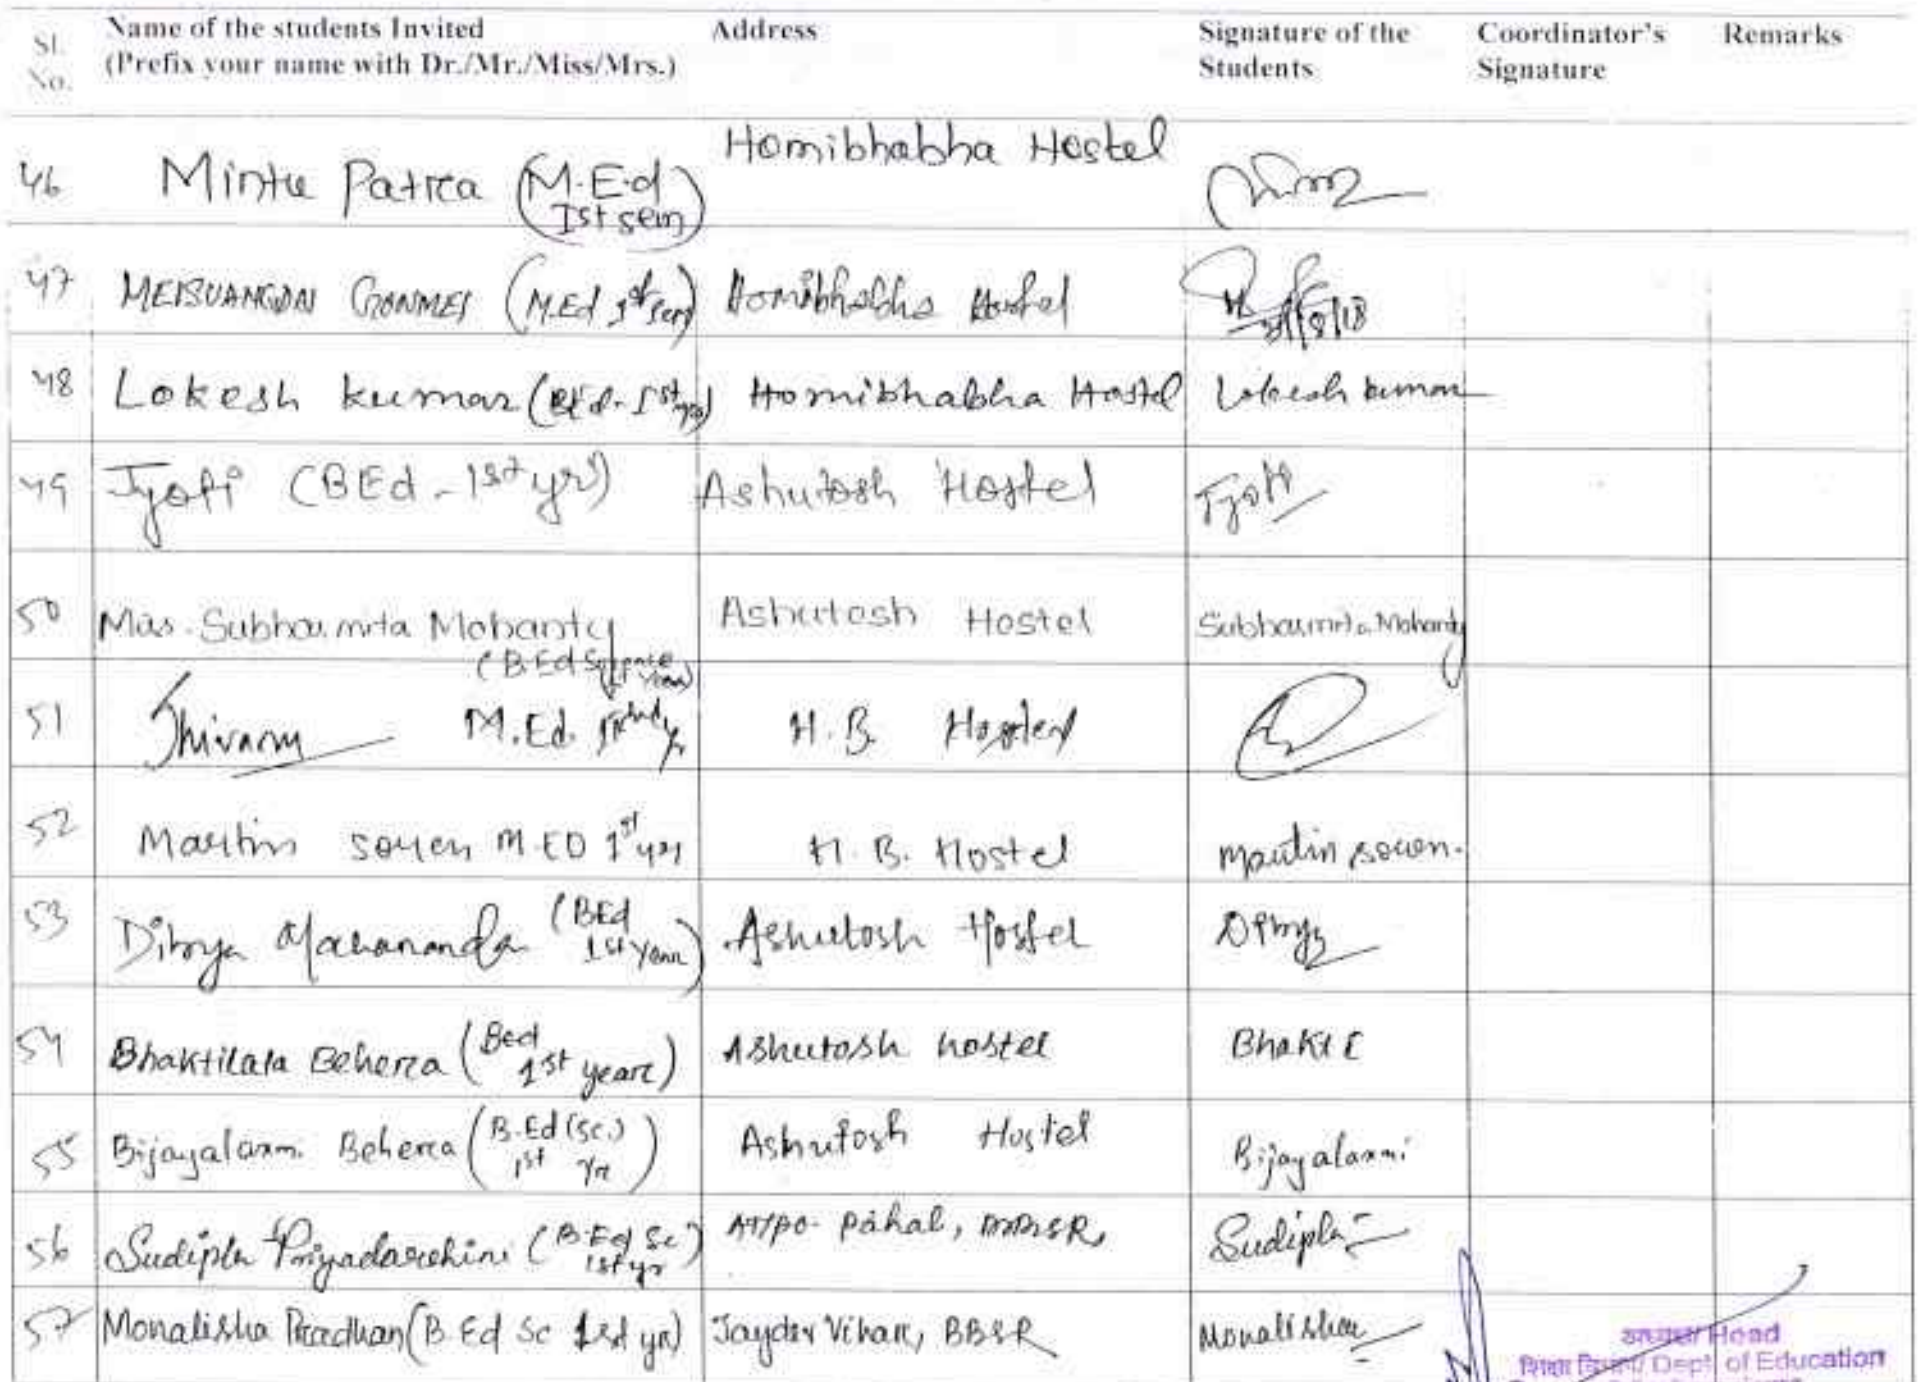 Sl. No. Name of the students Invited (Prefix your name with Dr./Mr./Miss/Mrs.) Address Signature of the Students Coordinator's Signature Remarks
46 Mintu Patra (M.E.d Ist sem) Homibhabha Hostel
47 MEISUANGDAI GONMEI (M.Ed 1st sem) Homibhabha Hostel
48 Lokesh kumar (B.Ed. Ist yr) Homibhabha Hostel Lokesh kumar
49 Jyoti (BEd - 1st yr) Ashutosh Hostel Jyoti
50 Mas. Subhasmita Mohanty (B.Ed Science 1st Year) Ashutosh Hostel Subhasmita Mohanty
51 Shivam M.Ed. yr H.B. Hostel
52 Martin soren M.ED 1st yr H.B. Hostel Martin soren.
53 Dibya Mahananda (BEd 1st Year) Ashutosh Hostel Dibya
54 Bhaktilata Behera (Bed 1st year) Ashutosh hostel Bhakti
55 Bijayalaxmi Behera (B.Ed (sc.) 1st Yr) Ashutosh Hostel Bijayalaxmi
56 Sudipta Priyadarshini (B.Ed Sc 1st yr) AT/PO- Pahal, BBSR, Sudipta
57 Monalisha Pradhan (B.Ed Sc 1st yr) Jaydev Vihar, BBSR Monalisha
अध्यक्ष/ Head
शिक्षा विभाग/ Dept. of Education